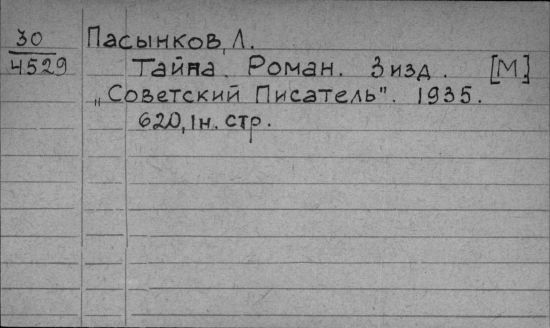 30
4529
Пасынков, Л.
Тайна. Роман. 3 изд. [М]
„Советский Писатель". 1935.
620, 1 н. стр.